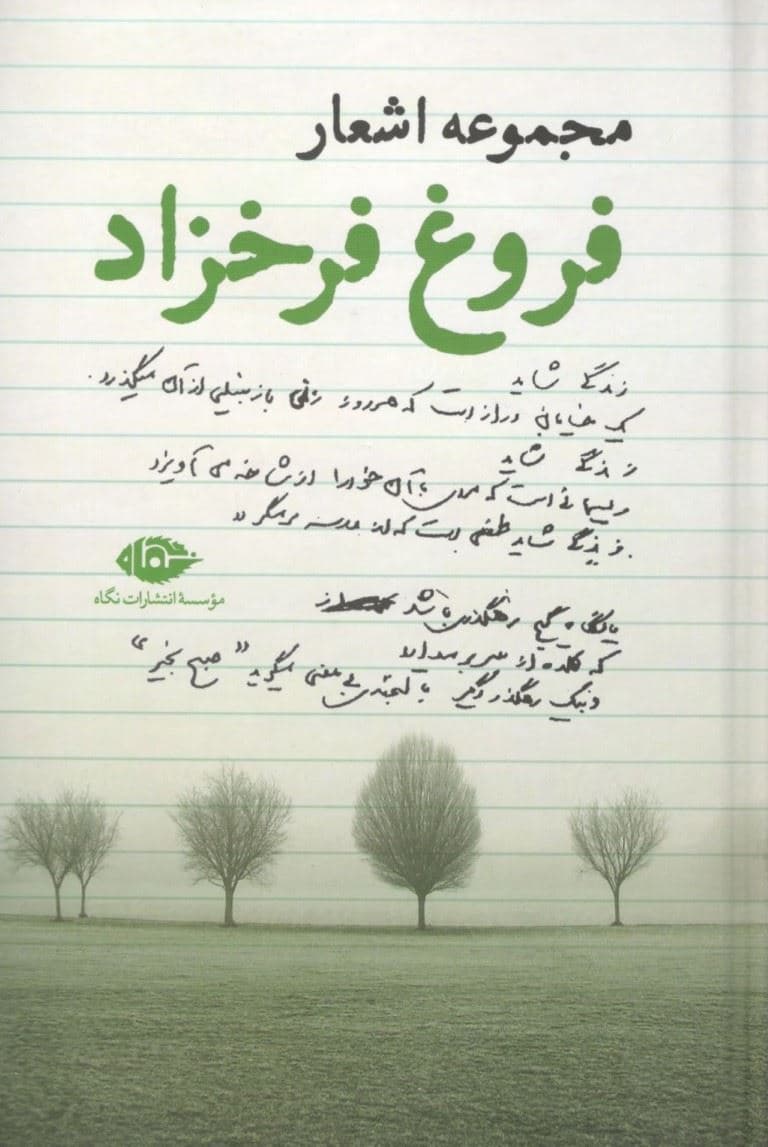 مجموعه اشعار
فروغ فرخزاد
زندگی شاید
یک خیابان دراز است که هر روز زنی با زنبیلی از آن میگذرد.
زندگی شاید
ریسمانی است که مردی با آن خود را از شاخه می آویزد
و زندگی شاید طفلی است که از مدرسه برمیگردد.
نگاه
مؤسسهٔ انتشارات نگاه
یا نگاه گیج رهگذری باشد
که کلاه از سر بر میدارد
و بیک رهگذر دیگر با لبخندی بی معنی میگوید "صبح بخیر"